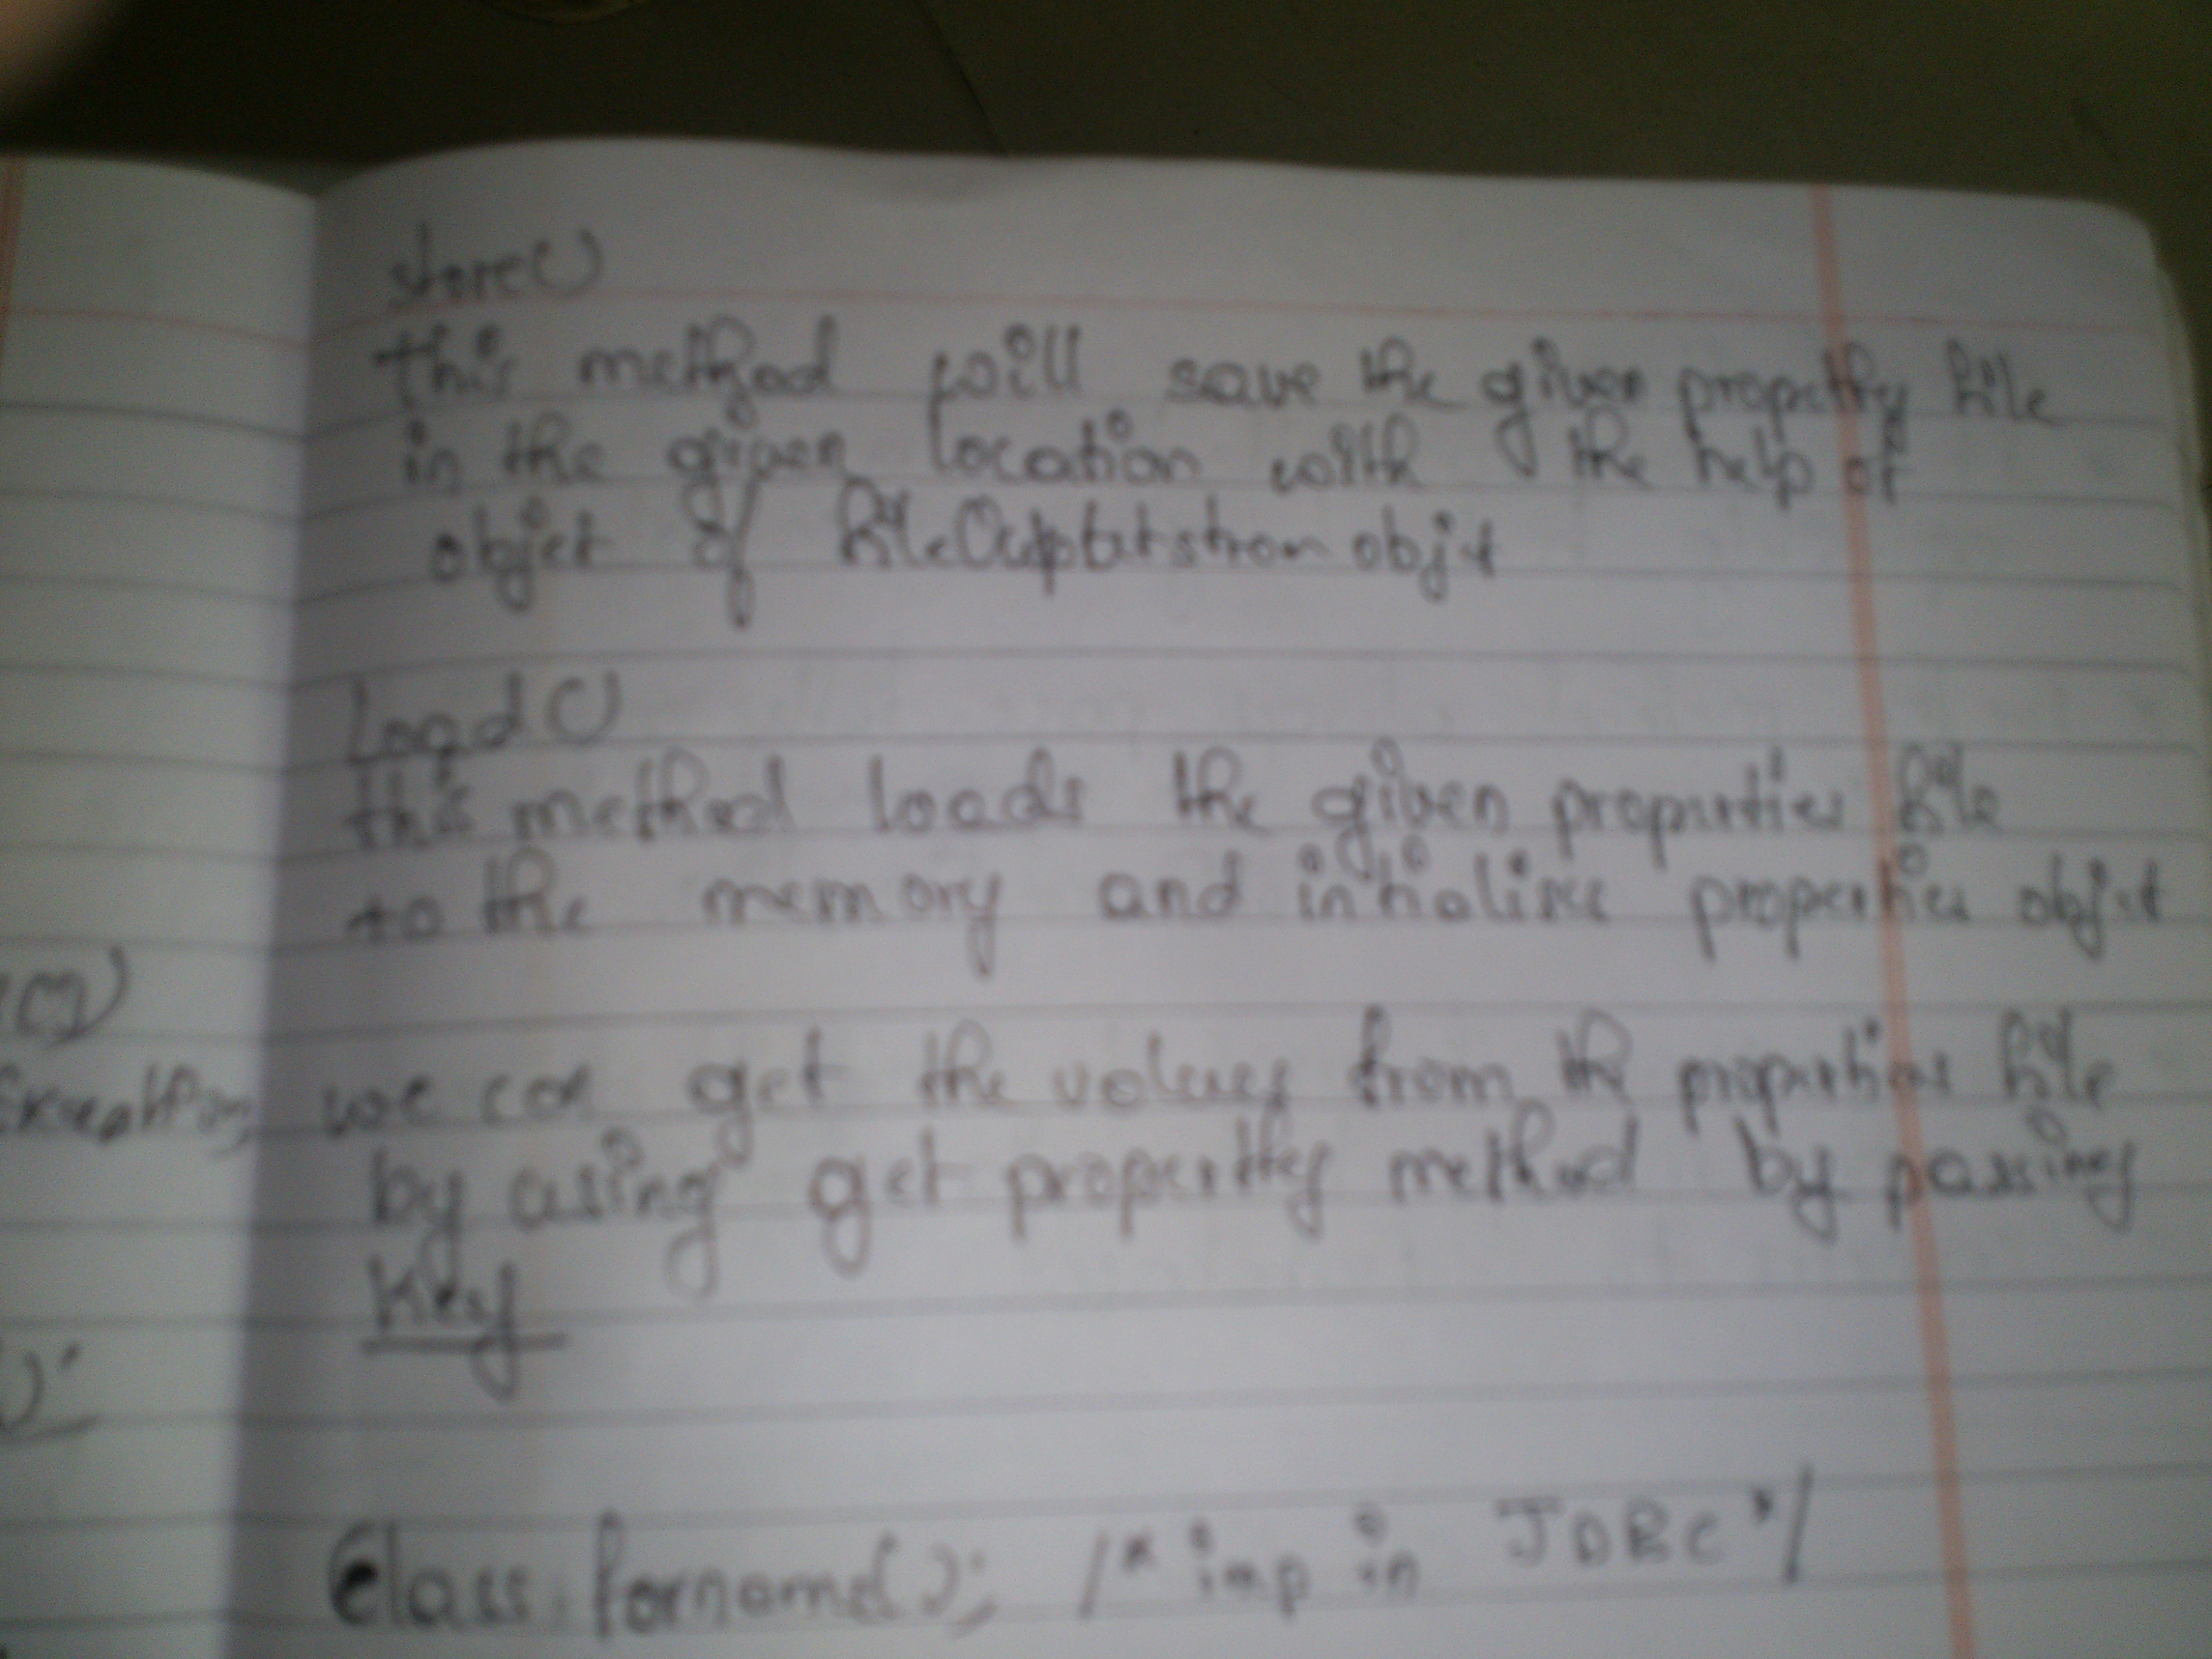 store()
this method will save the given propertty file
in the given location with the help of
objet of file Outputstrem objt
Load()
this method loads the given properties file
to the memory and intialises properties objet
we can get the values from the properties file
by using get propertty method by passing
Key
Class.forname(); /* imp in JDBC */
Exception